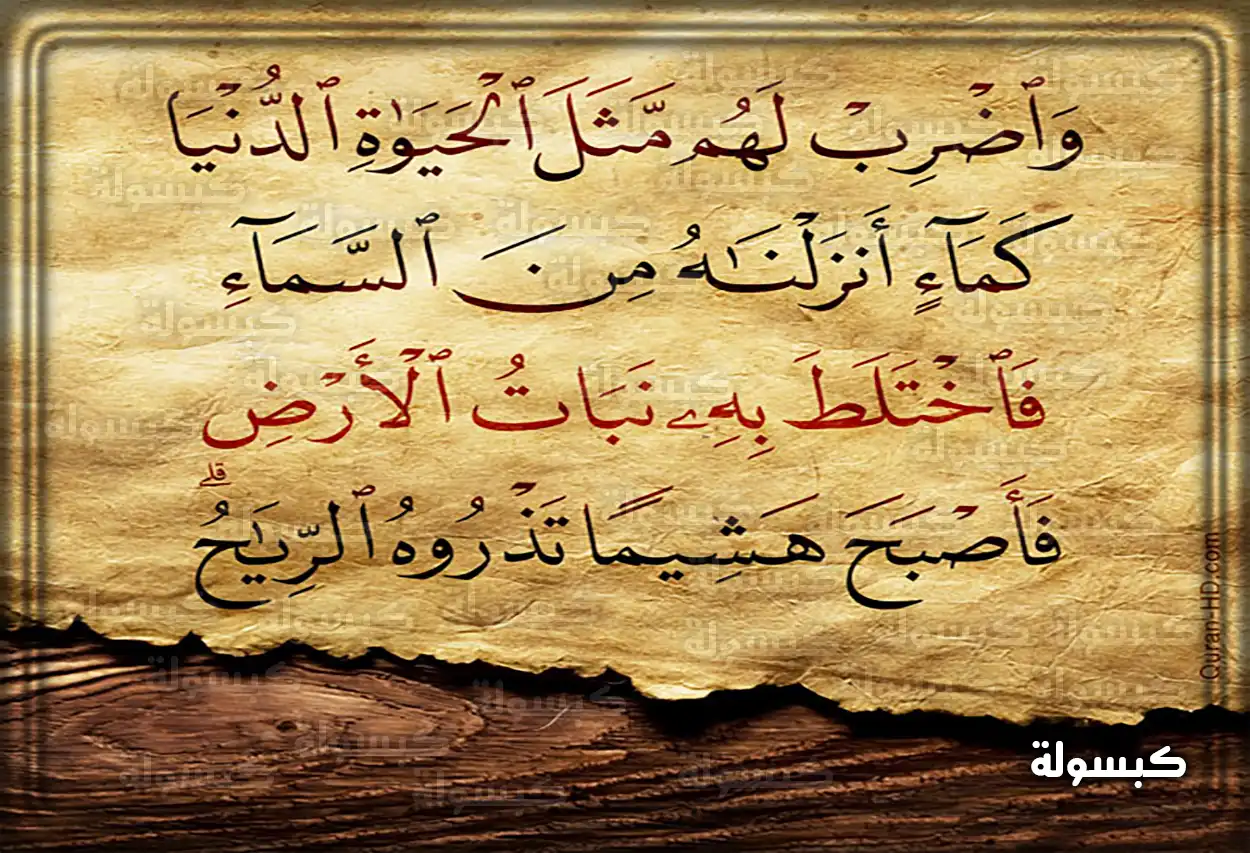 وَٱضْرِبْ لَهُم مَّثَلَ ٱلْحَيَوٰةِ ٱلدُّنْيَا
كَمَآءٍ أَنزَلْنَـٰهُ مِنَ ٱلسَّمَآءِ
فَٱخْتَلَطَ بِهِۦ نَبَاتُ ٱلْأَرْضِ
فَأَصْبَحَ هَشِيمًا تَذْرُوهُ ٱلرِّيَـٰحُ ۗ
Quran-HD.com
كبسولة